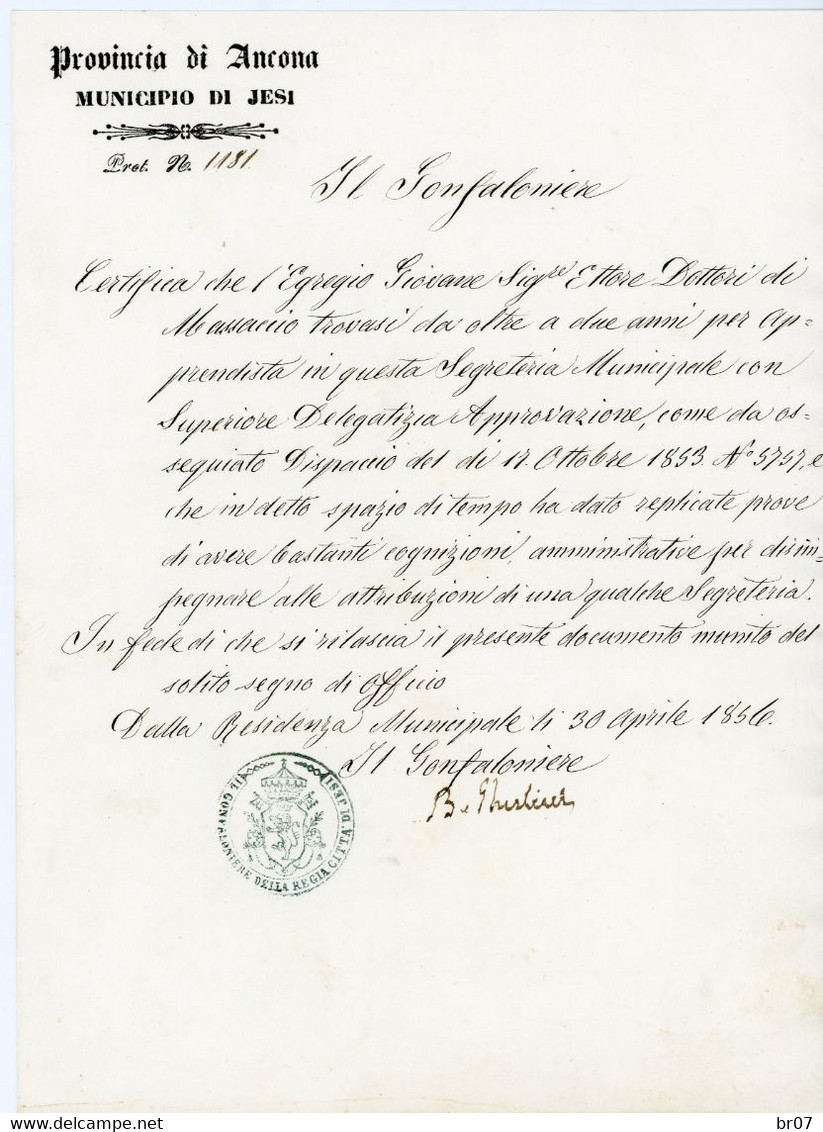 Provincia di Ancona
MUNICIPIO DI JESI
Prot. N. 1181.
Il Gonfaloniere
Certifica che l'Egregio Giovane Sigre Ettore Dottori di
Massaccio trovasi da oltre a due anni per ap-
prendista in questa Segreteria Municipale con
Superiore Delegatizia Approvazione, come da os-
sequiato Dispaccio del di 17. Ottobre 1853. No 5757, e
che in detto spazio di tempo ha dato replicate prove
di avere bastanti cognizioni amministrative per disim-
pegnare alle attribuzioni di una qualche Segreteria.
In fede di che si rilascia il presente documento munito del
solito segno di officio
Dalla Residenza Municipale li 30 Aprile 1856.
Il Gonfaloniere
B.
IL GONFALONIERE DELLA REGIA CITTA' DI JESI
br07